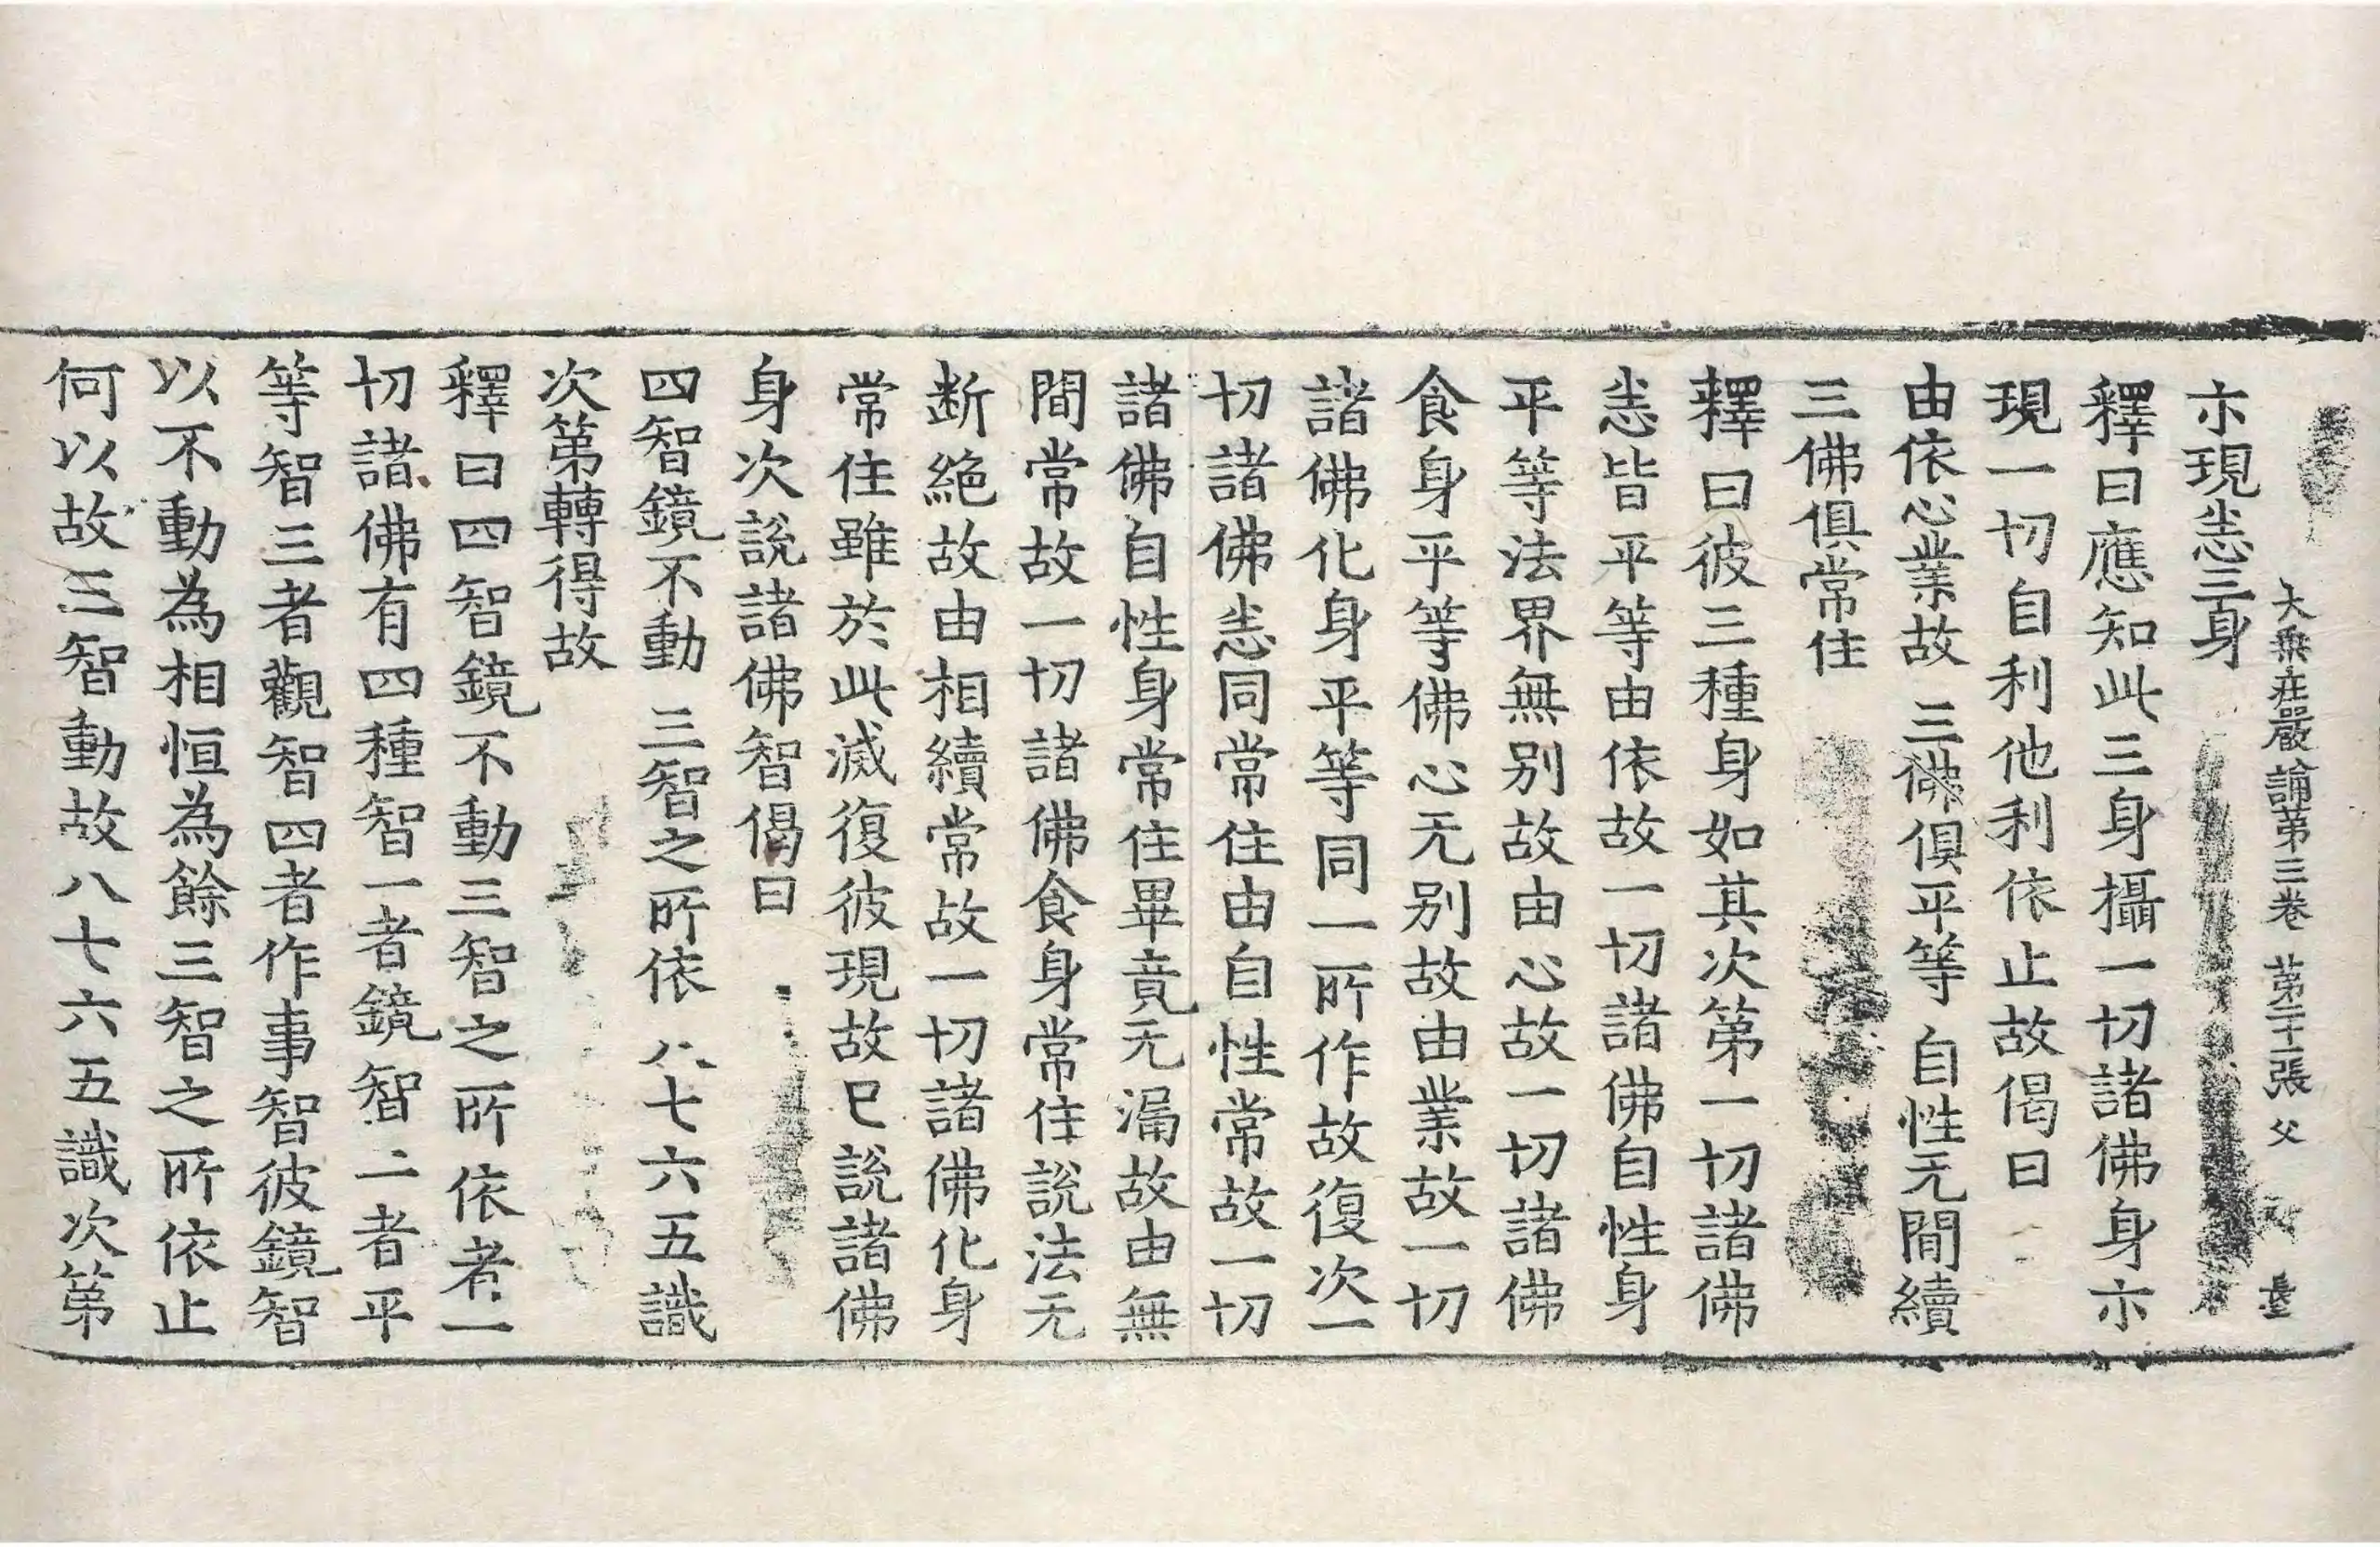 大乘莊嚴論第三卷 第二十張 父
亦現恙三身
釋曰應知此三身攝一切諸佛身亦
現一切自利他利依止故偈曰
由依心業故 三佛俱平等 自性无間續
三佛俱常住
釋曰彼三種身如其次第一切諸佛
恙皆平等由依故一切諸佛自性身
平等法界無別故由心故一切諸佛
食身平等佛心无別故由業故一切
諸佛化身平等同一所作故復次一
切諸佛恙同常住由自性常故一切
諸佛自性身常住畢竟无漏故由無
間常故一切諸佛食身常住說法无
断絕故由相續常故一切諸佛化身
常住雖於此滅復彼現故已說諸佛
身次說諸佛智偈曰
四智鏡不動 三智之所依 八七六五識
次第轉得故
釋曰四智鏡不動三智之所依者一
切諸佛有四種智一者鏡智二者平
等智三者觀智四者作事智彼鏡智
以不動為相恒為餘三智之所依止
何以故三智動故八七六五識次第